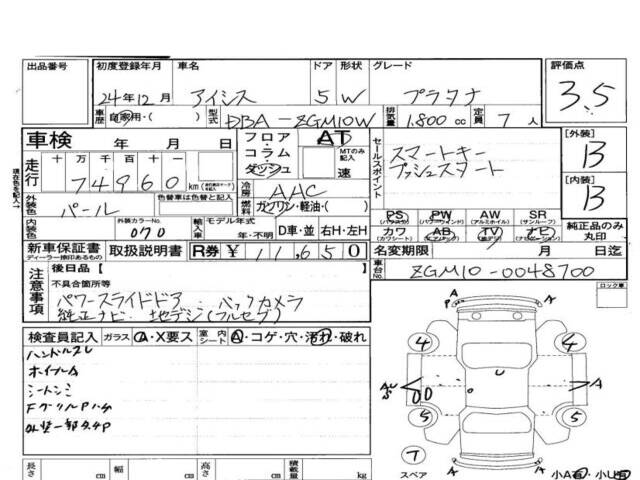 出品番号 初度登録年月 車名 ドア 形状 グレード 評価点
24年12月 アイシス 5 W プラタナ 3.5
車歴 自家用・( ) 型式 DBA-ZGM10W 排気量 1.800 cc 定員 7 人
車検 年 月 日 フロア・コラム・ダッシュ AT MTのみ記入 速
セールスポイント スマートキー
プッシュスタート
[外装] B
[内装] B
走行 十 万 千 百 十 74960 km
冷房 AAC
外装色 パール 色替車は色替え前
燃料 ガソリン・軽油・( )
PS PW AW SR
(パワーウインド) (アルミホイル) (サンルーフ)
カワ AB TV ナビ 純正品のみ丸印
(カワシート) (エアバッグ) (ナビゲーション)
内装色 外装カラーNo. 070 輸入車 モデル年式 年・不明 D車・並 右H・左H
新車保証書 取扱説明書 R券 ¥ 11,650 名変期限 月 日迄
ディーラー捺印あるもの
車台No. ZGM10-0048700
注意事項 後日品【
不具合箇所等
パワースライドドア バックカメラ
純正ナビ 地デジ(フルセグ)
ロック車
検査員記入 ガラス A・X要ス 室内シート A・コゲ・穴・汚れ・破れ
ハンドルスレ
ホイールA
4 4
A
5 5
7
スペア
小A 小U
長さ cm 幅 cm 高さ cm 積載量 kg